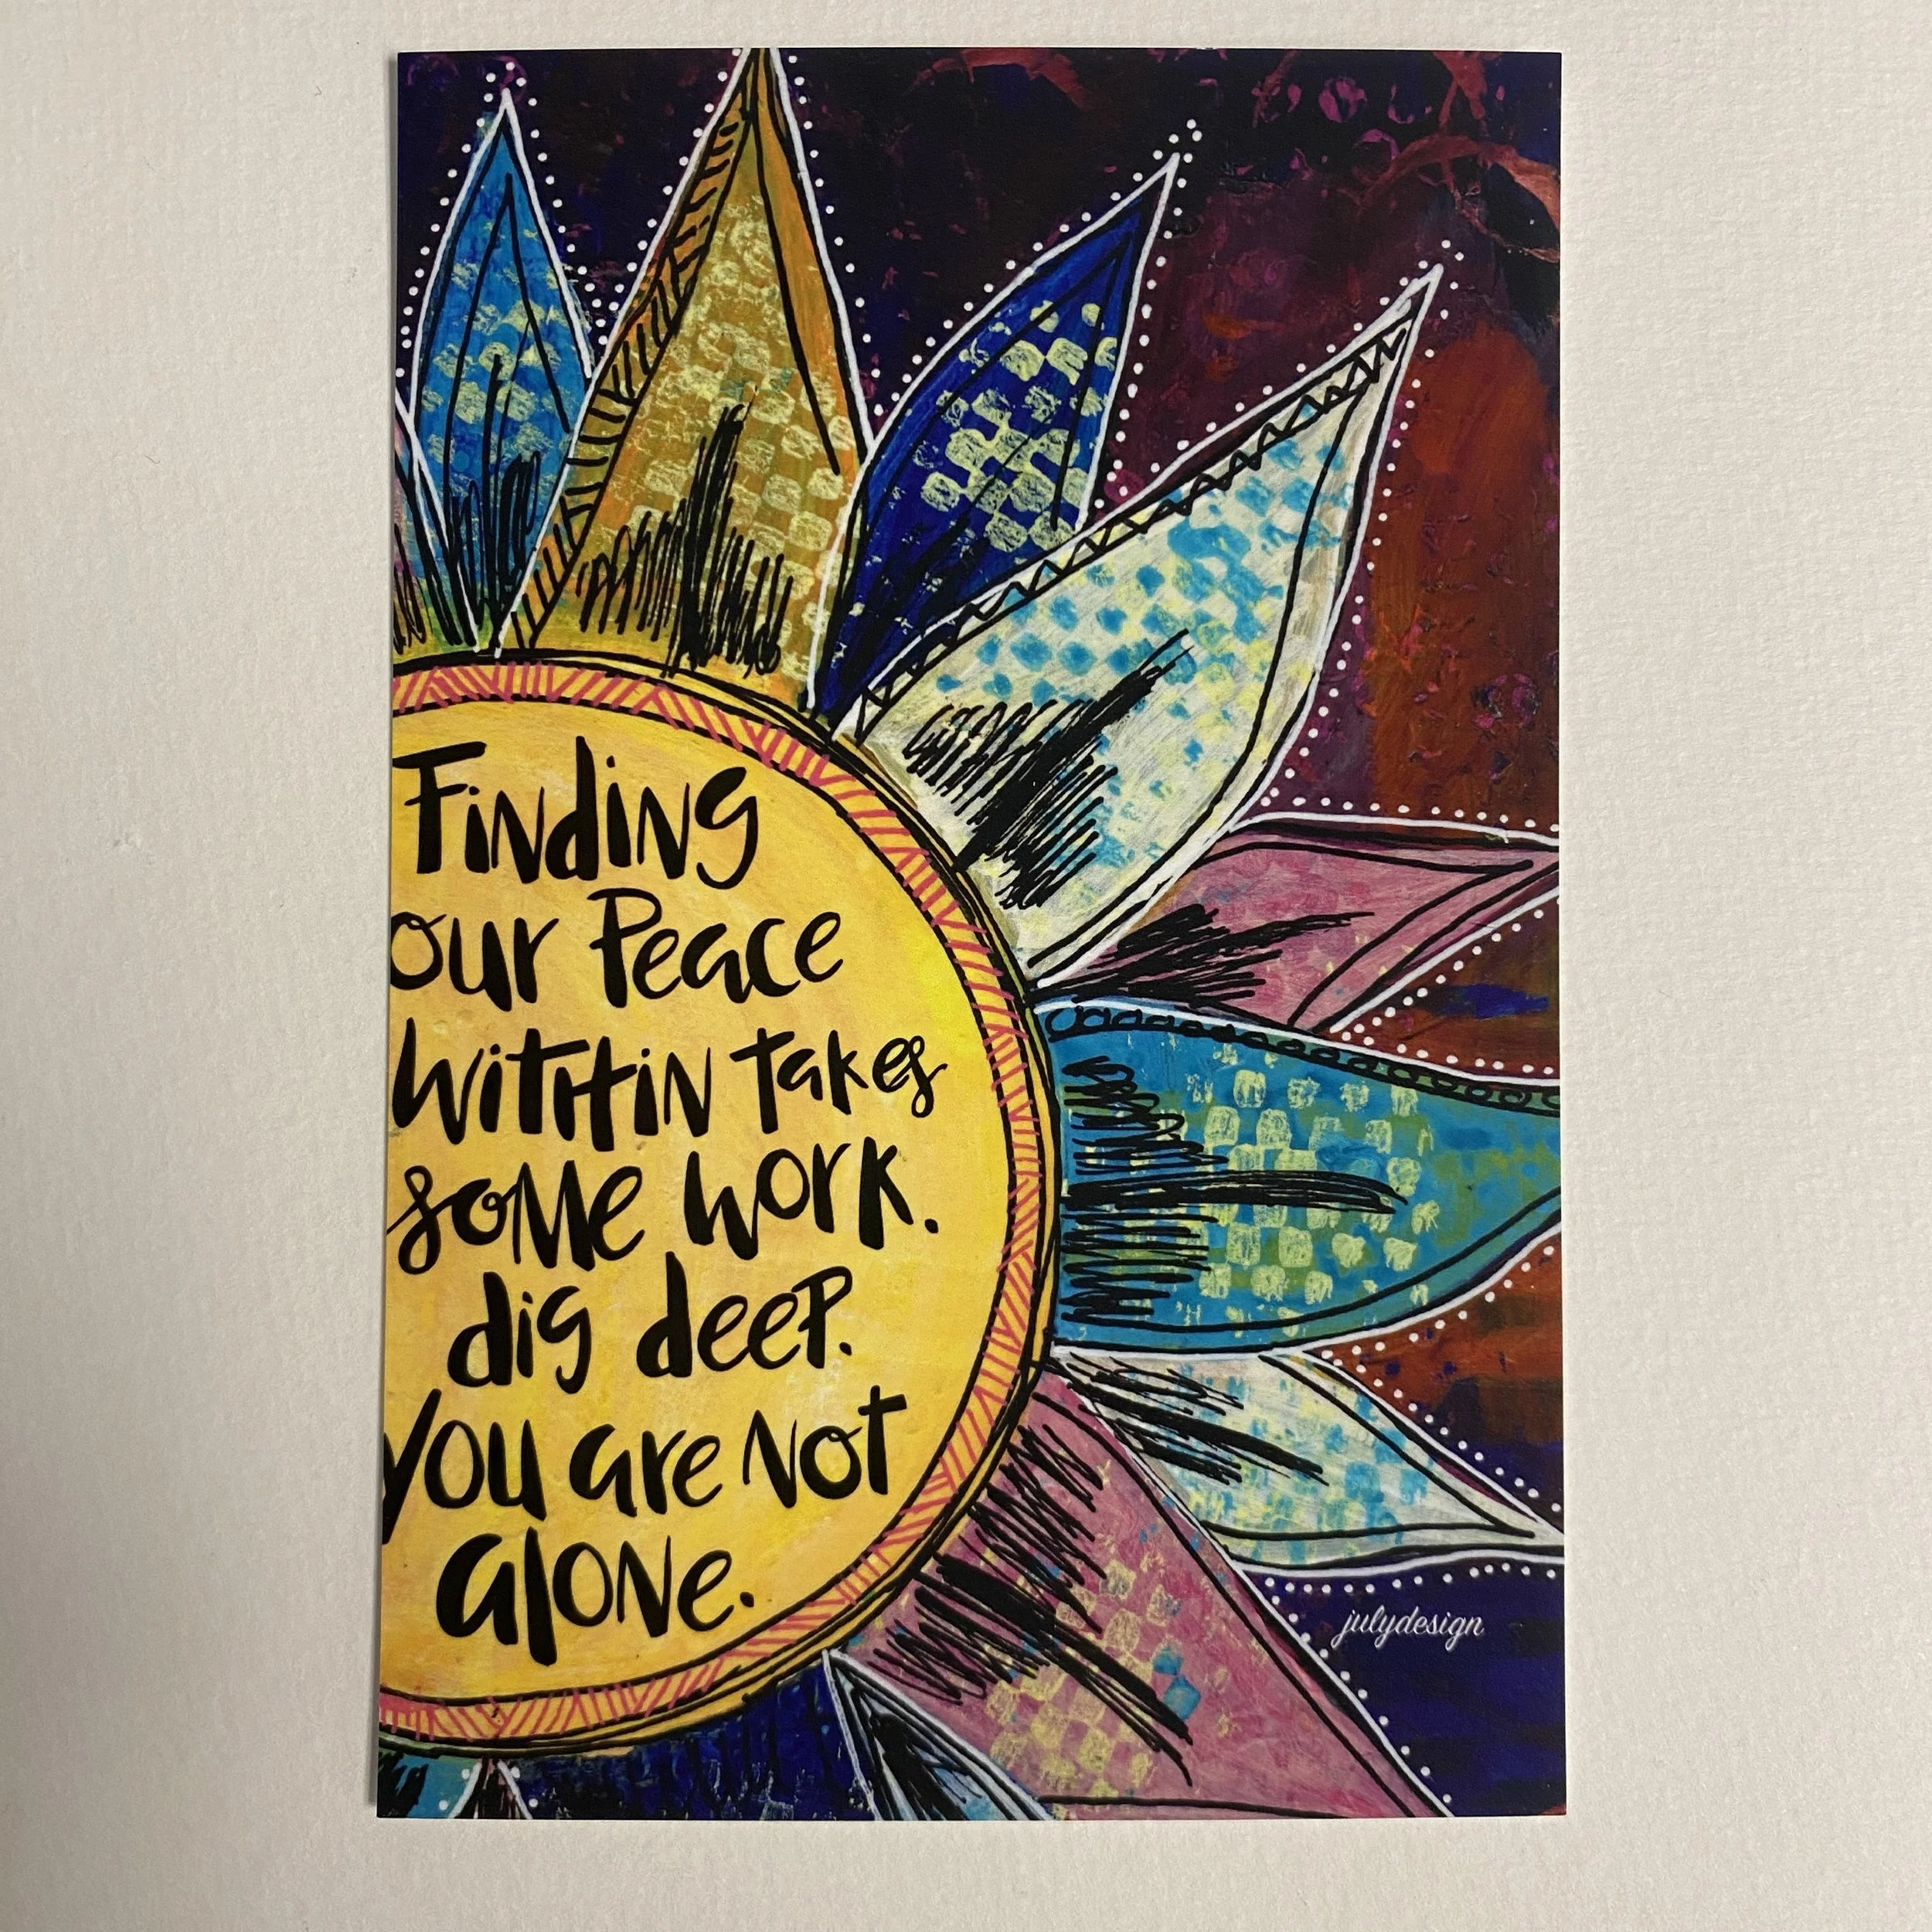 Finding
our Peace
within takes
some work.
dig deep.
you are not
alone.
julydesign